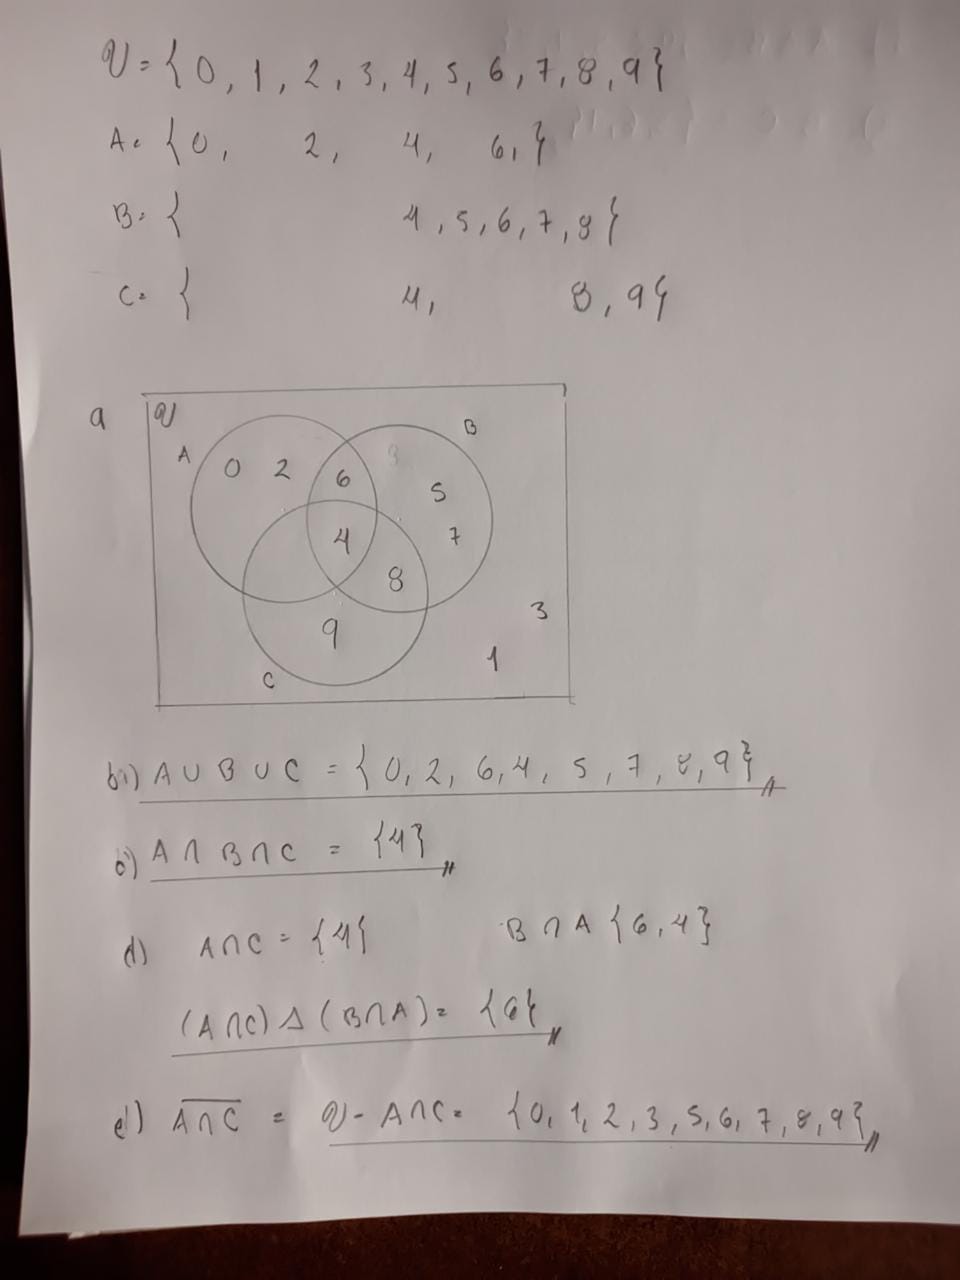 U = {0, 1, 2, 3, 4, 5, 6, 7, 8, 9}
A = {0, 2, 4, 6,}
B = { 4, 5, 6, 7, 8}
C = { 4, 8, 9}
a
U
A B
0 2 6 5
4 7
8
9 3
1
C
A ∪ B ∪ C = {0, 2, 6, 4, 5, 7, 8, 9}
A ∩ B ∩ C = {4}
d) A∩C = {4} B ∩ A {6, 4}
(A∩C) Δ (B∩A) = {6}
e) \overline{A∩C} = U - A∩C = {0, 1, 2, 3, 5, 6, 7, 8, 9}